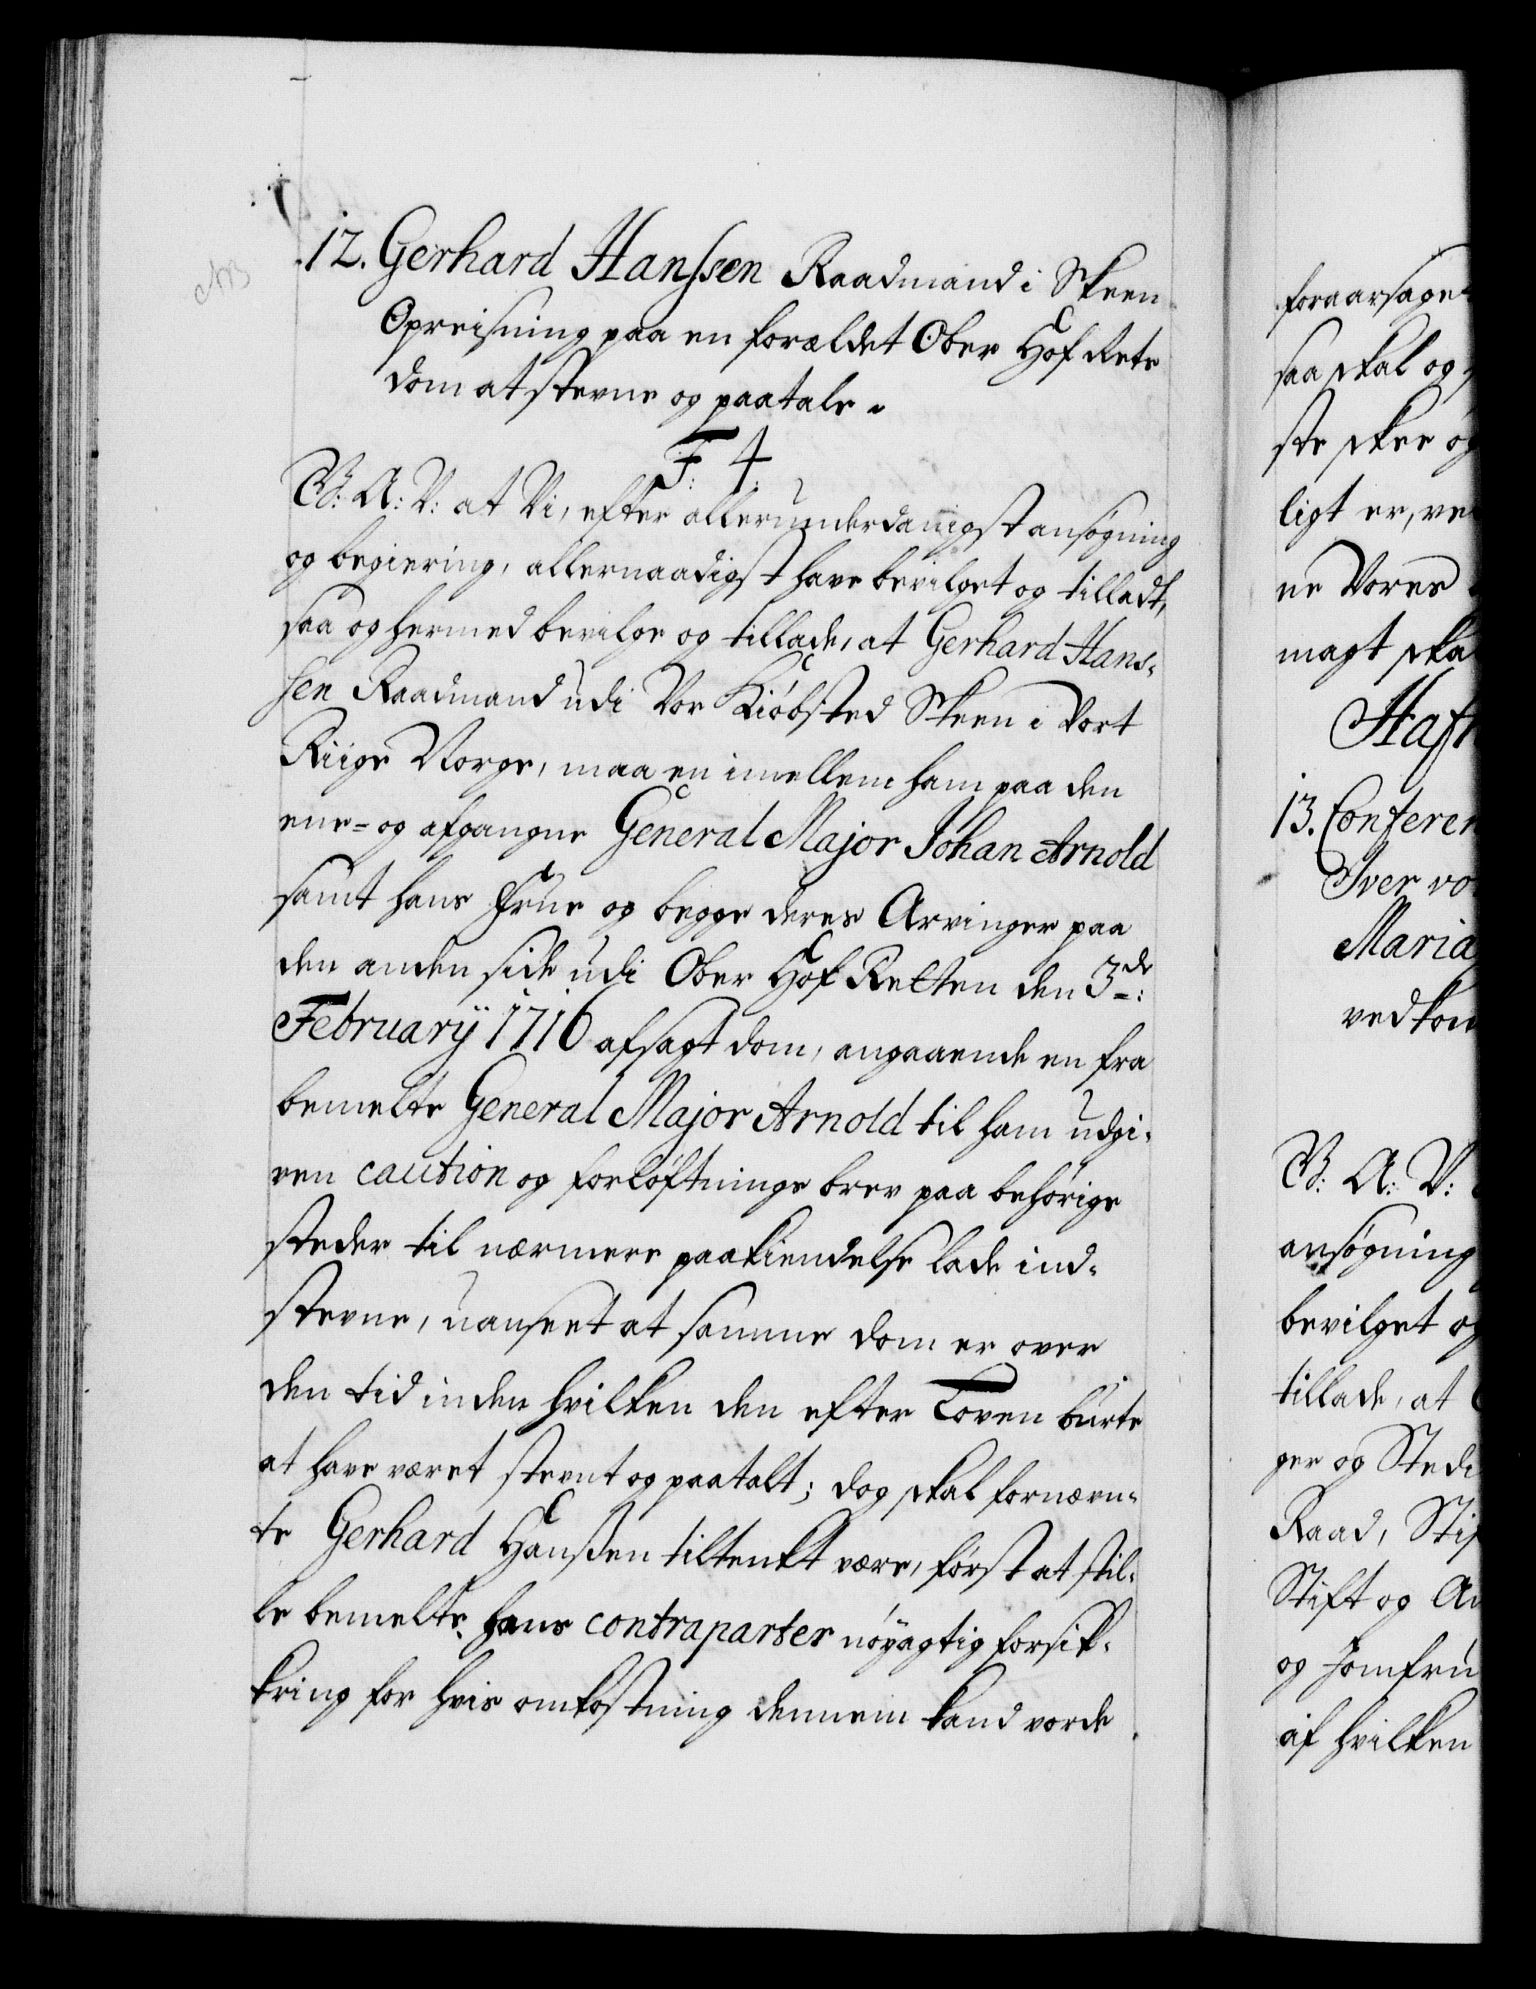 12. Gerhard Hanssen Raadmand i Skeen
Opreisning paa en forældet Ober Hof Rets
dom at stevne og paatale.
F: 4.
G: A: V: at Vi, efter allerunderdanigst ansøgning
og begiering, allernaadigst have bevilget og tilladt,
saa og hermed bevilge og tillade, at Gerhard Hans-
sen Raadmand udi Vor Kiøbsted Skeen i Vort
Riige Norge, maa en imellem ham paa den
ene= og afgangne General Major Johan Arnold
samt hans Frue og begge deres Arvinger paa
den anden side udi Ober Hof Retten den 3de:
February 1716 afsagt dom, angaaende en fra
bemelte General Major Arnold til ham udgi-
ven caution og forløftnings brev paa behørige
steder til nærmere paakiendelse lade ind-
stevne, uanseet at samme dom er over
den tid inden hvilken den efter Loven burte
at have været stevnt og paatalt; dog skal fornævn-
te Gerhard Hanssen tiltenkt være, først at stil-
le bemelte hans contraparter nøyagtig forsik-
kring for hvis omkostning dennem kand vorde
foraarsaget
saa skal og
ste skee og
ligt er, ve
ne Vores
magt ska
Hafn
13. Conferen
Iver vo
Maria
vedkom
G: A: V:
ansøgning
bevilget og
tillade, at
ger og Stedi
Raad, Stif
Stift og A
og Jomfru
af hvilken